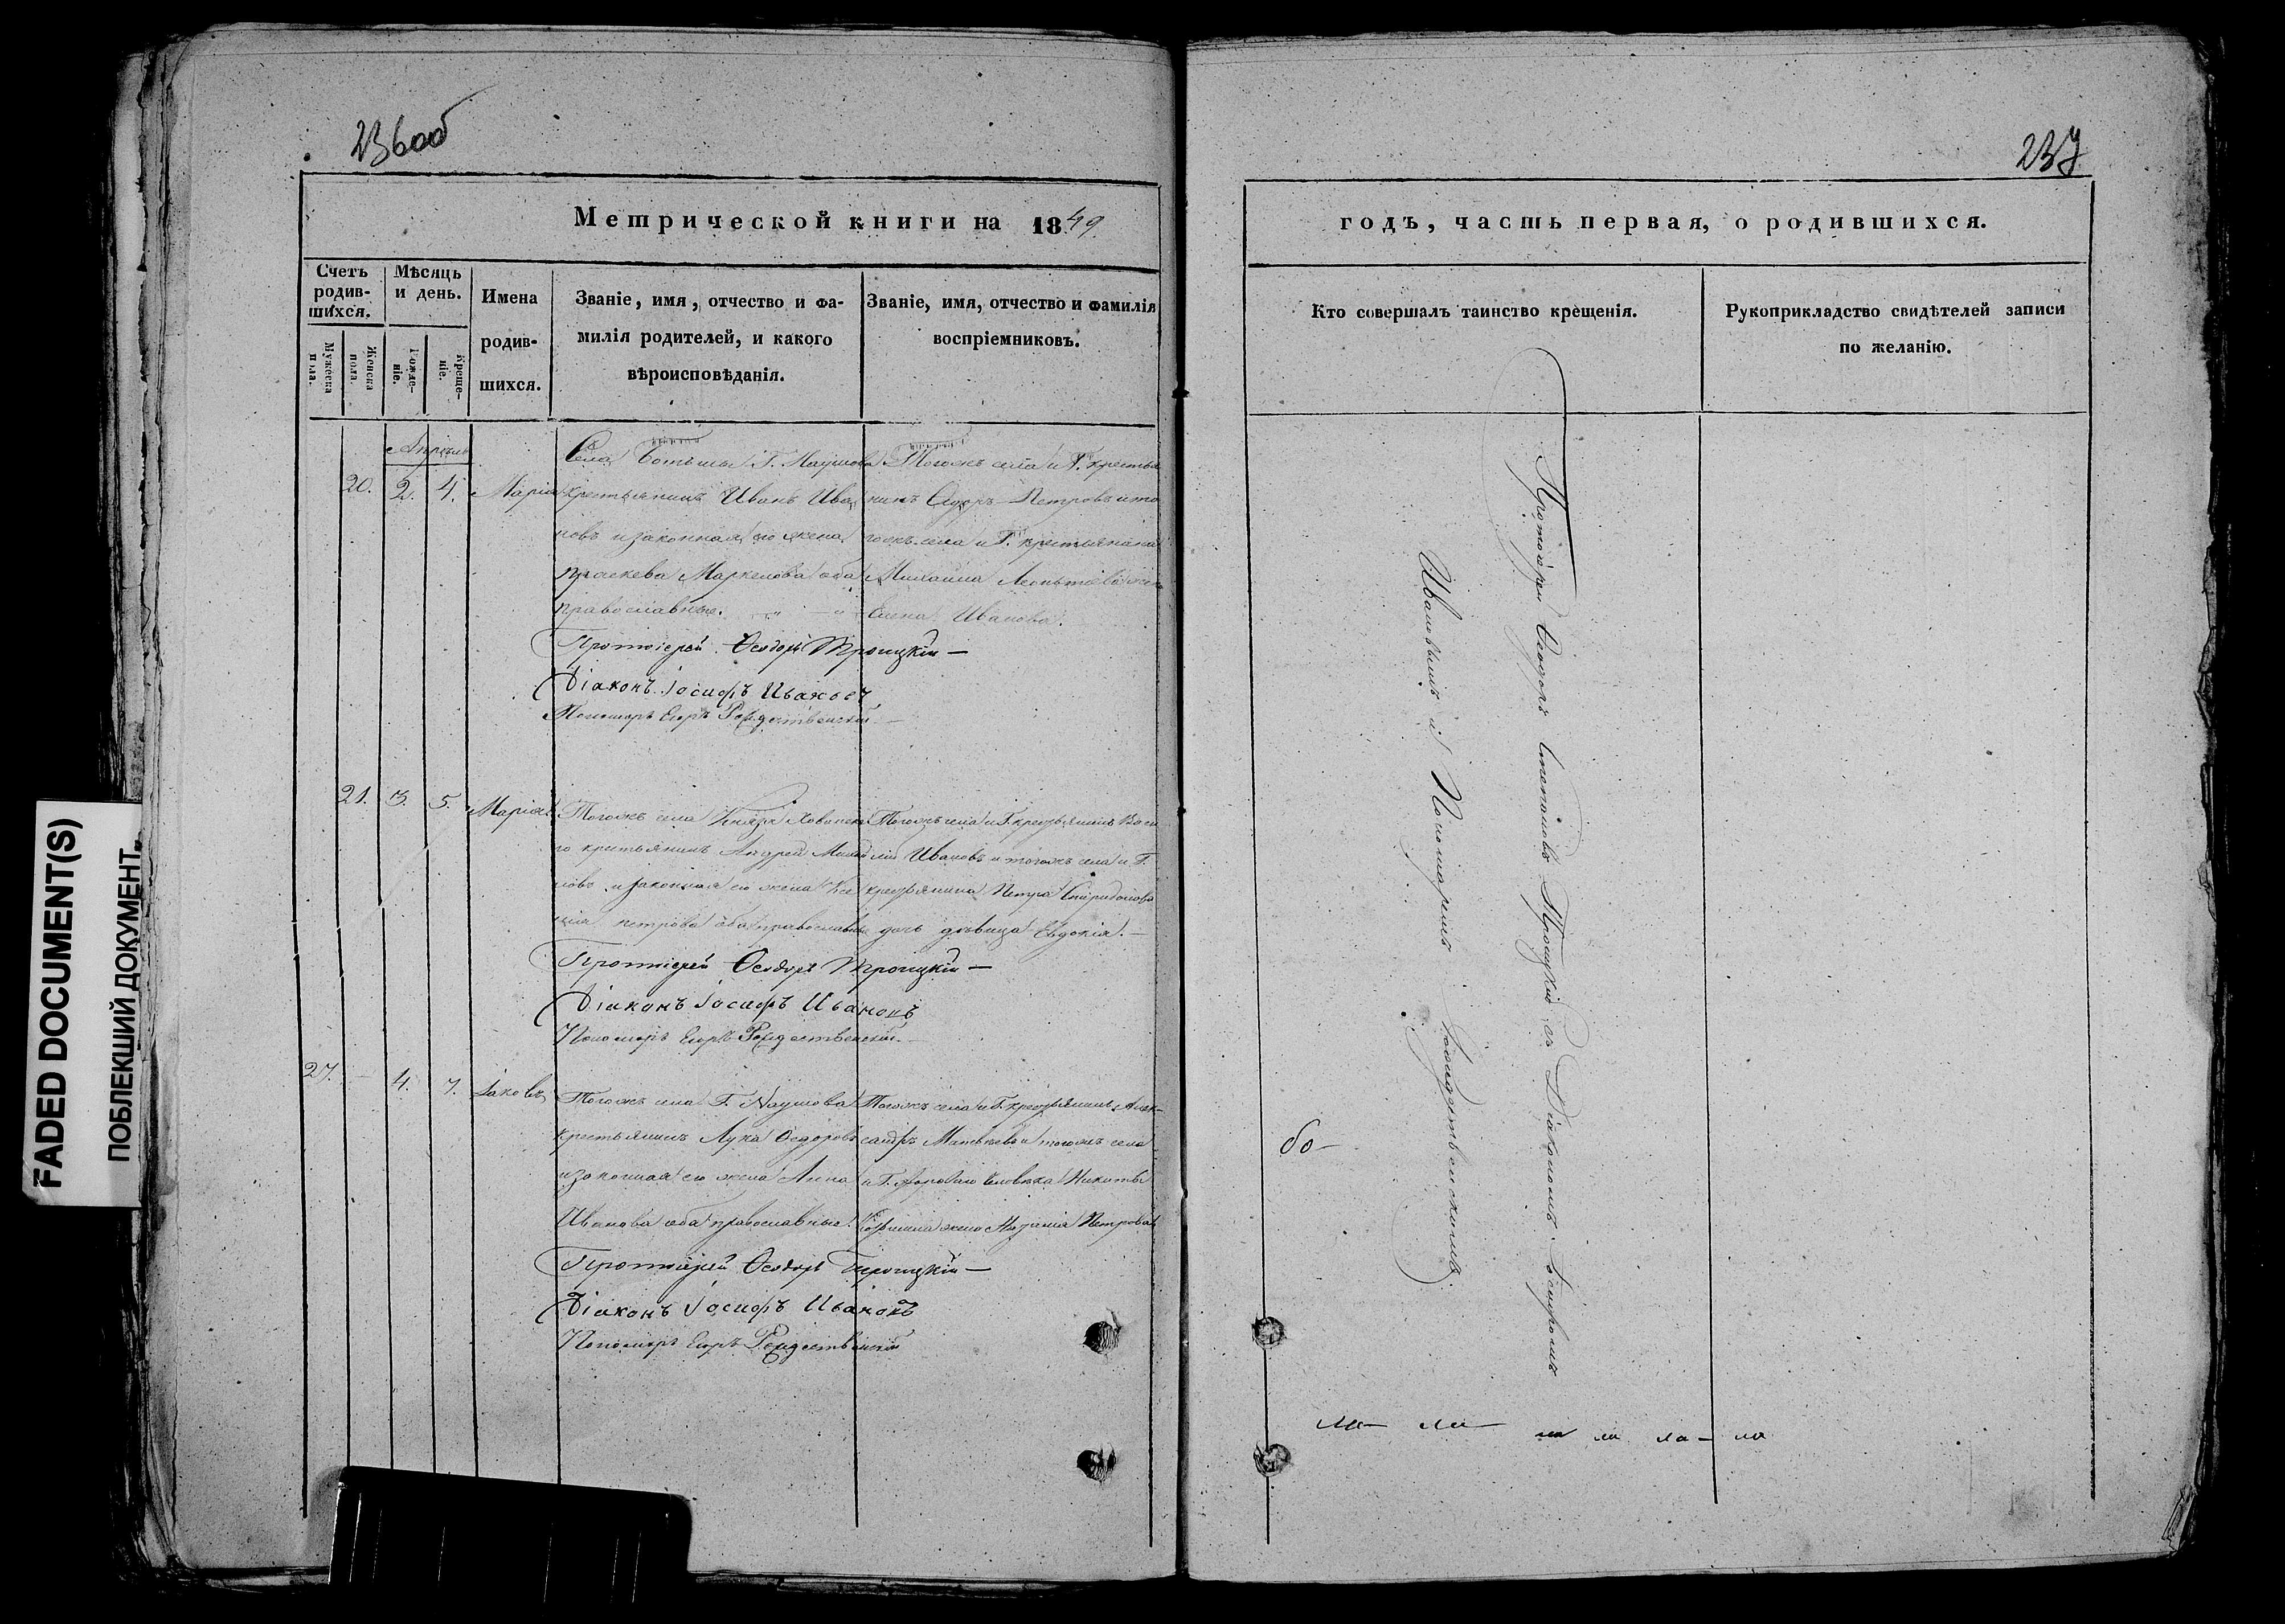 236об
Метрической книги на 1849
Счетъ родившихся.
Мужеска пола.
Женска пола.
Мѣсяцъ и день.
Рожденіе.
Крещеніе.
Имена родившихся.
Званіе, имя, отчество и фамилія родителей, и какого вѣроисповѣданія.
Званіе, имя, отчество и фамилія воспріемниковъ.
Апрѣль
20. 2. 4. Марія
Села Г. Наумова
крестьянинъ Иванъ Ива
новъ и законная его жена
Праскева Маркелова оба
православные.
Тогожъ села и Г. крестья
нинъ Петровъ и то
гожъ села и Г. крестьянина
Михаила Леонтьева жена
Елена Иванова.
Протоіерей Ѳеодоръ Троицкій
Діаконъ Іосифъ Ивановъ
Пономарь Егоръ Рождественскій
21. 3. 5. Марія
Тогожъ села Князя Хованска
го крестьянинъ Андрей Михай
ловъ и законная его жена Ксе
нія Петрова оба православные
Тогожъ села и Г. крестьянинъ Васи
лій Ивановъ и тогожъ села и Г.
крестьянина Петра Спиридонова
дочь дѣвица Евдокія.
Протоіерей Ѳеодоръ Троицкій
Діаконъ Іосифъ Ивановъ
Пономарь Егоръ Рождественскій
27. - 4. 7. Іаковъ
Тогожъ села Г. Наумова
крестьянинъ Лука Ѳедоровъ
и законная его жена Анна
Иванова оба православные.
Тогожъ села и Г. крестьянинъ Алек-
сандръ Матвѣевъ и тогожъ села
и Г. человѣка Никиты
жена Петрова
Протоіерей Ѳеодоръ Троицкій
Діаконъ Іосифъ Ивановъ
Пономарь Егоръ Рождественскій
237
годъ, часть первая, о родившихся.
Кто совершалъ таинство крещенія.
Рукоприкладство свидѣтелей записи по желанію.
Протоіерей Ѳеодоръ Степановъ Троицкій съ Діакономъ Іосифомъ
Ивановымъ и Пономаремъ Рождественскимъ
FADED DOCUMENT(S)
ПОБЛЕКШИЙ ДОКУМЕНТ